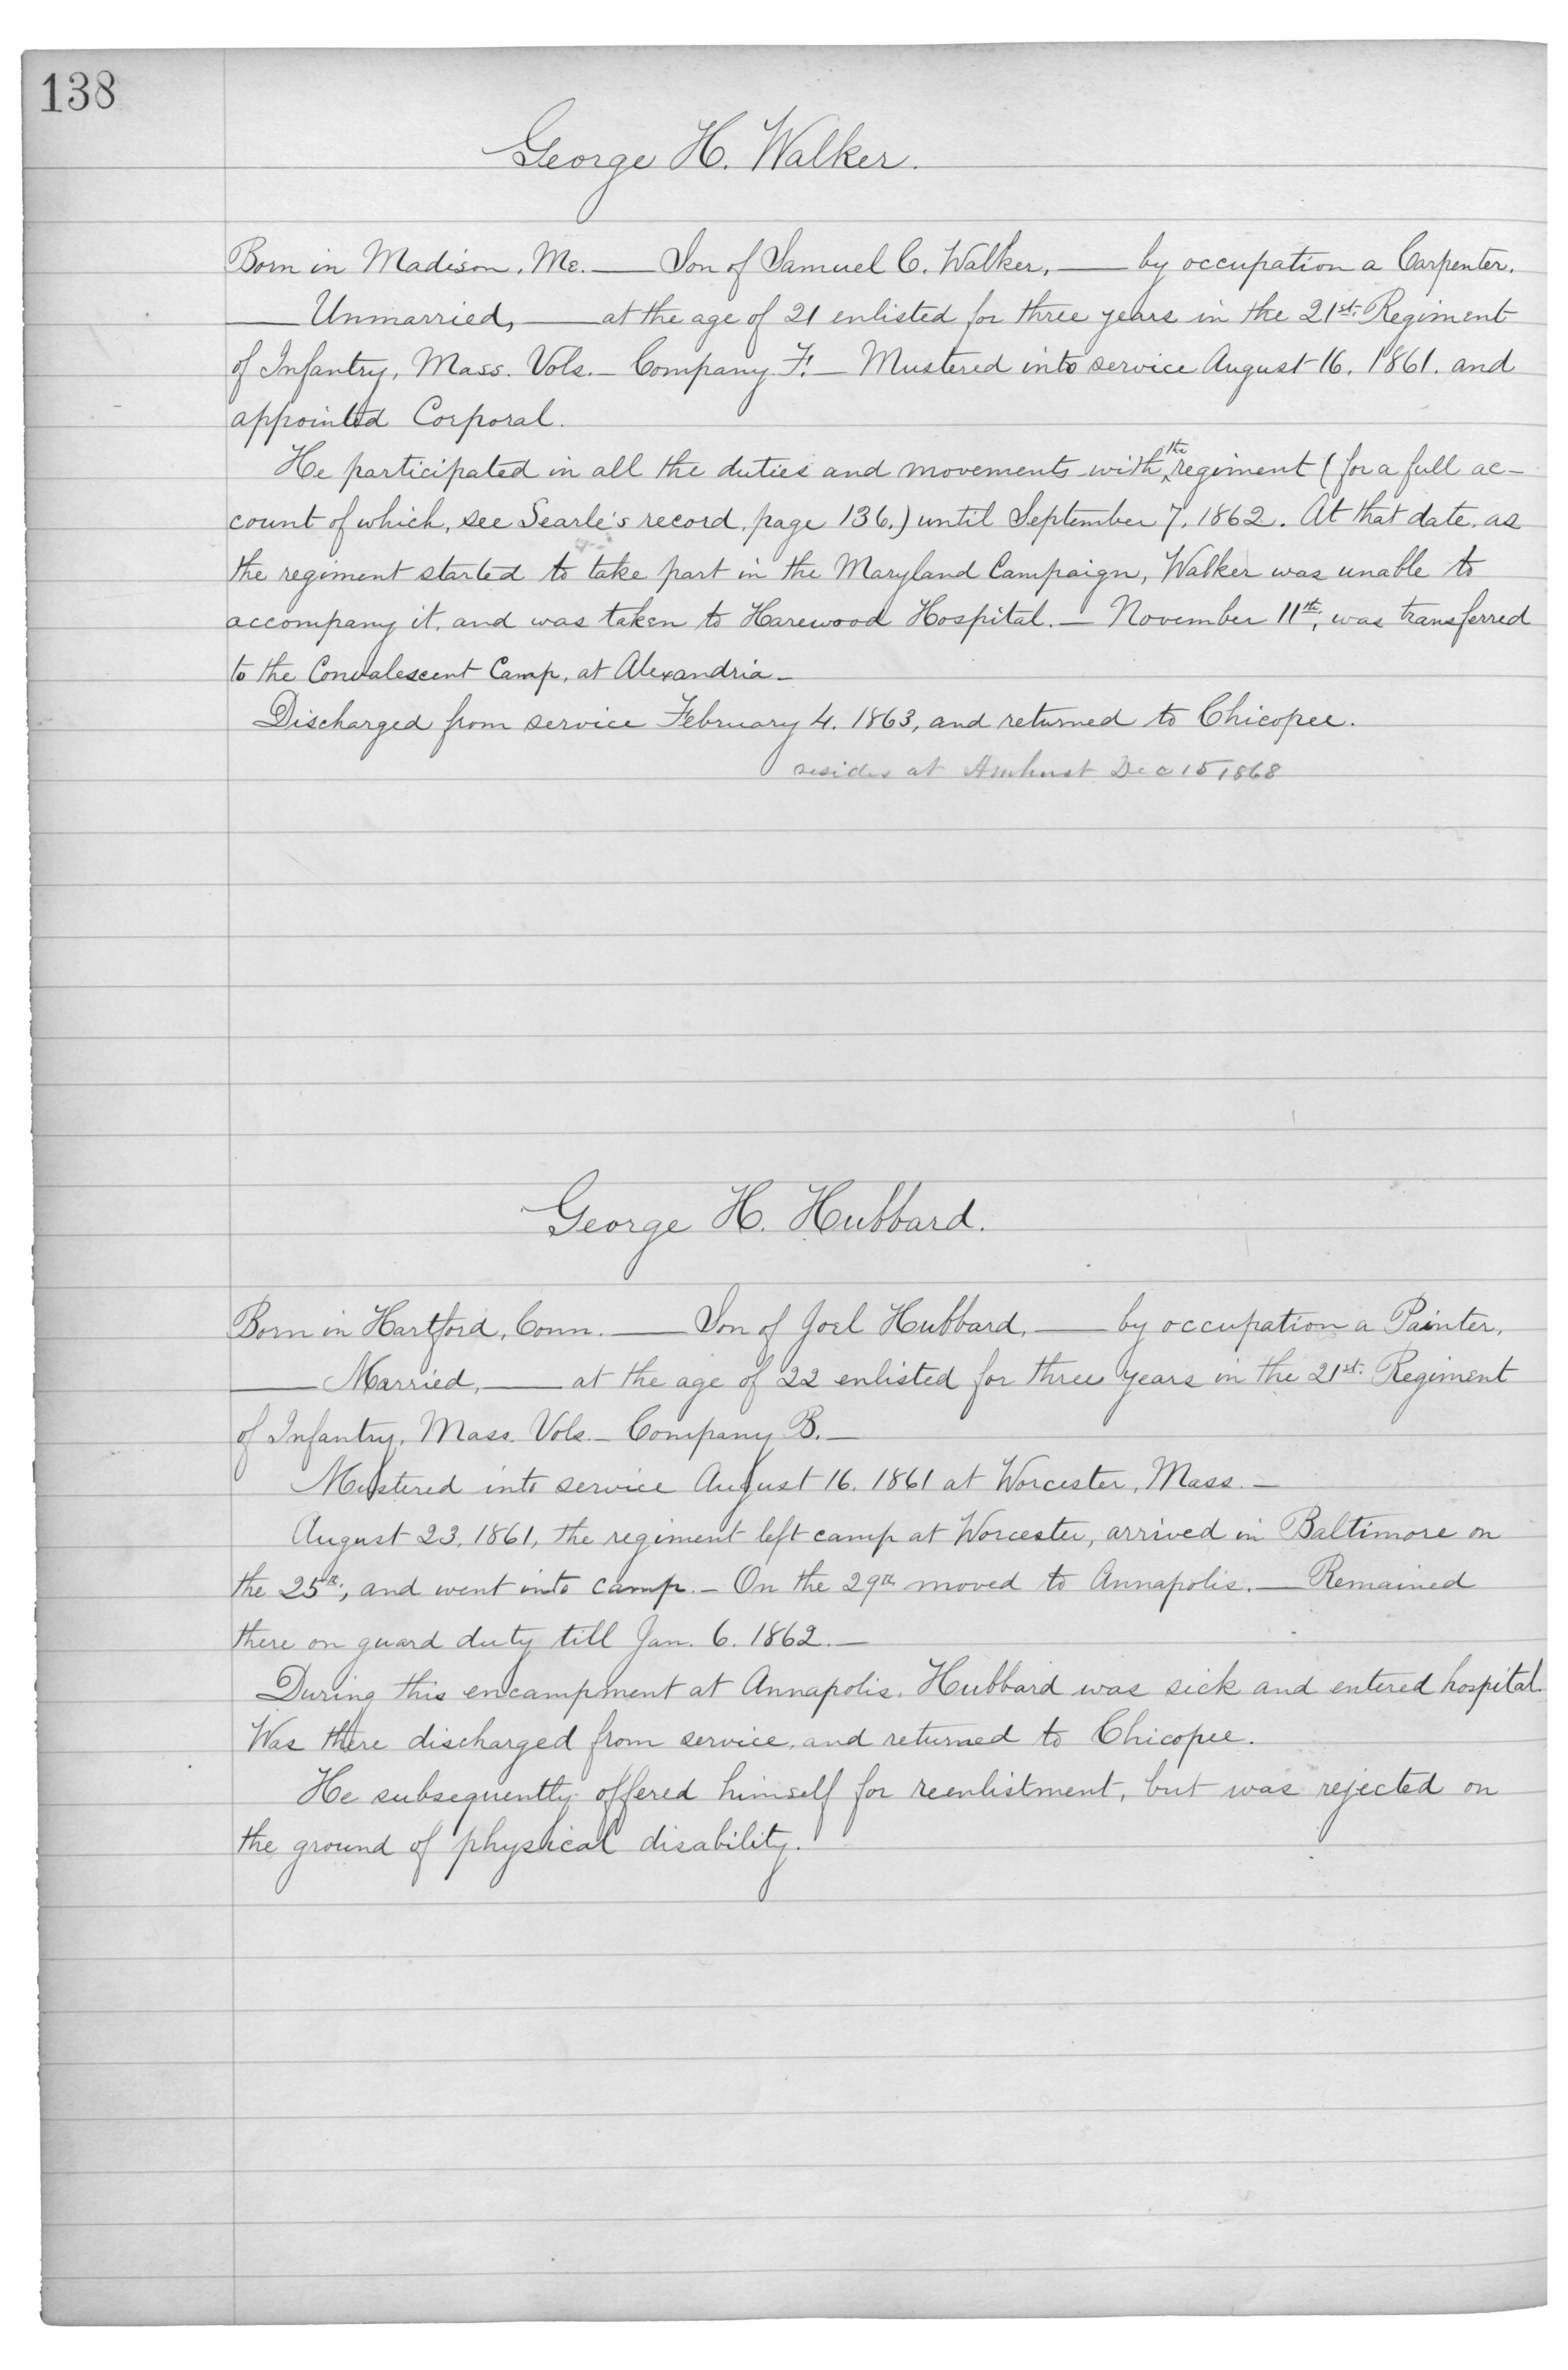 138
George H. Walker.
Born in Madison, Me. — Son of Samuel C. Walker, — by occupation a Carpenter,
— Unmarried, — at the age of 21 enlisted for three years in the 21st. Regiment
of Infantry, Mass. Vols. — Company F. — Mustered into service August 16, 1861, and
appointed Corporal.
He participated in all the duties and movements with the regiment (for a full ac-
count of which, see Searle's record, page 136.) until September 7, 1862. At that date, as
the regiment started to take part in the Maryland Campaign, Walker was unable to
accompany it, and was taken to Harewood Hospital. — November 11th, was transferred
to the Convalescent Camp, at Alexandria —
Discharged from service February 4. 1863, and returned to Chicopee.
resides at Amherst Dec 15 1868
George H. Hubbard.
Born in Hartford, Conn. — Son of Joel Hubbard, — by occupation a Painter,
— Married, — at the age of 22 enlisted for three years in the 21st. Regiment
of Infantry, Mass. Vols. — Company B. —
Mustered into service August 16. 1861 at Worcester, Mass. —
August 23, 1861, the regiment left camp at Worcester, arrived in Baltimore on
the 25th, and went into camp. — On the 29th moved to Annapolis. — Remained
there on guard duty till Jan. 6. 1862. —
During this encampment at Annapolis, Hubbard was sick and entered hospital.
Was there discharged from service, and returned to Chicopee.
He subsequently offered himself for reenlistment, but was rejected on
the ground of physical disability.